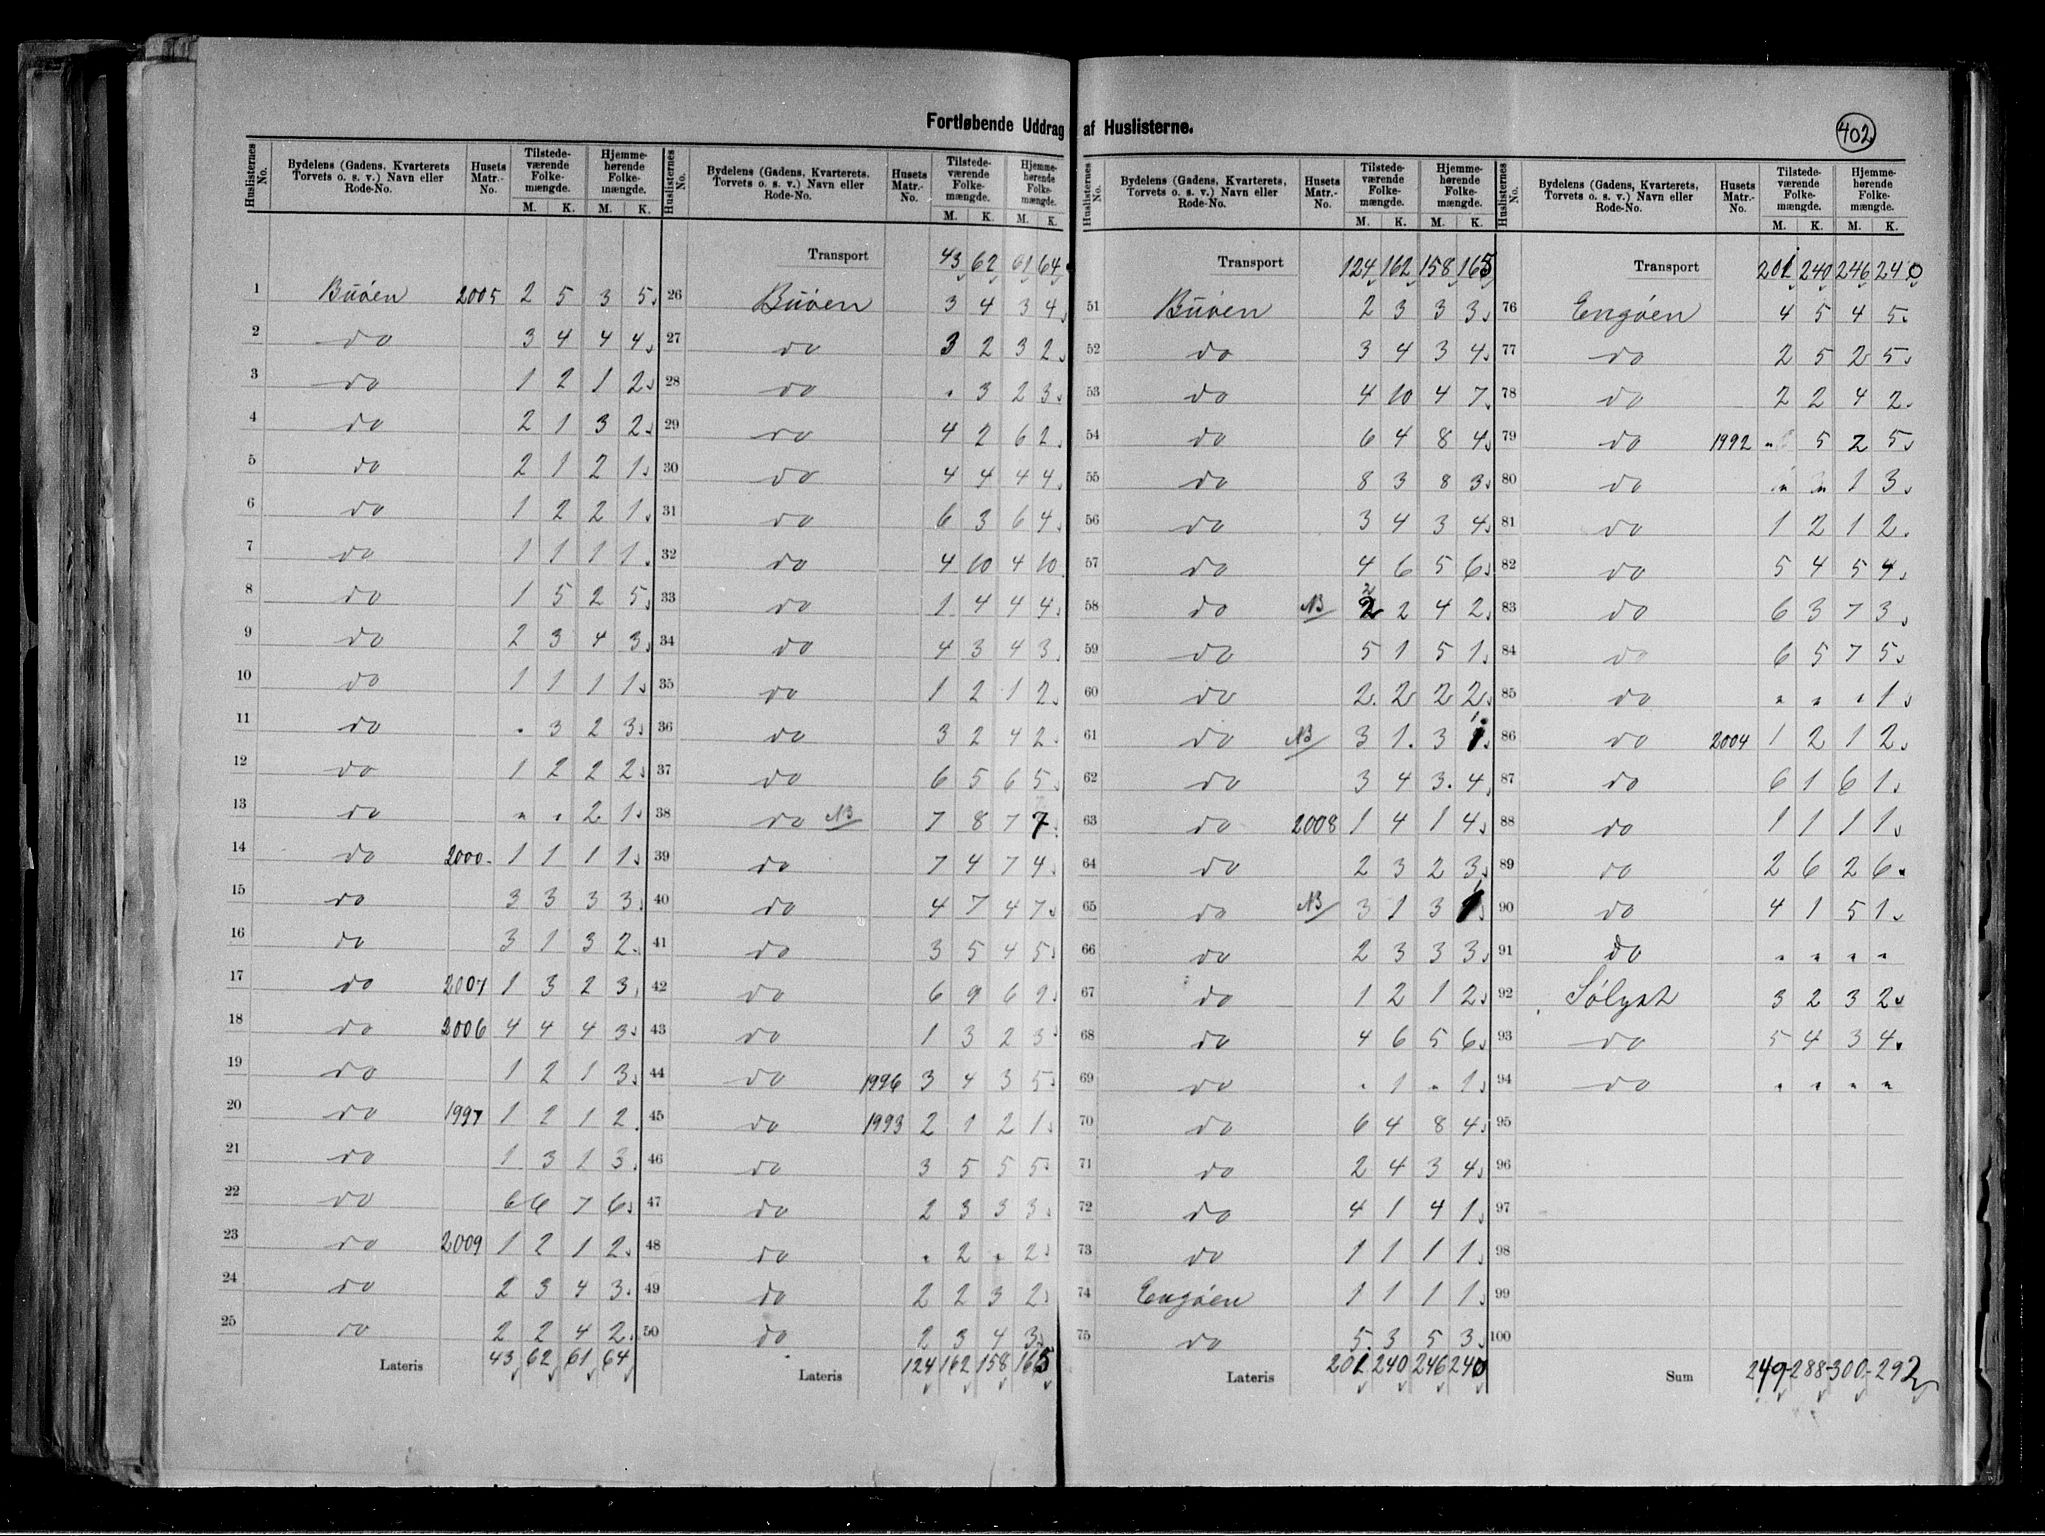 Fortløbende Uddrag af Huslisterne.
402
Huslisternes No. | Bydelens (Gadens, Kvarterets Torvets o. s. v.) Navn eller Rode-No. | Husets Matr.-No. | Tilstedeværende Folkemængde. M. K. | Hjemmehørende Folkemængde. M. K.
1 Buøen 2005 2 5 3 5
2 do 3 4 4 4
3 do 1 2 1 2
4 do 2 1 3 2
5 do 2 1 2 1
6 do 1 2 2 1
7 do 1 1 1 1
8 do 1 5 2 5
9 do 2 3 4 3
10 do 1 1 1 1
11 do " 3 2 3
12 do 1 2 2 2
13 do " " 2 1
14 do 2000 1 1 1 1
15 do 3 3 3 3
16 do 3 1 3 2
17 do 2007 1 3 2 3
18 do 2006 4 4 4 3
19 do 1 2 1 3
20 do 1997 1 2 1 2
21 do 1 3 1 3
22 do 6 6 7 6
23 do 2009 1 2 1 2
24 do 2 3 4 3
25 do 2 2 4 2
Lateris 43 62 61 64
Huslisternes No. | Bydelens (Gadens, Kvarterets, Torvets o. s. v.) Navn eller Rode-No. | Husets Matr.-No. | Tilstedeværende Folkemængde. M. K. | Hjemmehørende Folkemængde. M. K.
Transport 43 62 61 64
26 Buøen 3 4 3 4
27 do 3 2 3 2
28 do " 3 2 3
29 do 4 2 6 2
30 do 4 4 4 4
31 do 6 3 6 4
32 do 4 10 4 10
33 do 1 4 4 4
34 do 4 3 4 3
35 do 1 2 1 2
36 do 3 2 4 2
37 do 6 5 6 5
38 do NB 7 8 7 7
39 do 7 4 7 4
40 do 4 7 4 7
41 do 3 5 4 5
42 do 6 9 6 9
43 do 1 3 2 3
44 do 1996 3 4 3 5
45 do 1993 2 1 2 1
46 do 3 5 5 5
47 do 2 3 3 3
48 do " 2 " 2
49 do 2 2 3 2
50 do 2 3 4 3
Lateris 124 162 158 165
Huslisternes No. | Bydelens (Gadens, Kvarterets, Torvets o. s. v.) Navn eller Rode-No. | Husets Matr.-No. | Tilstedeværende Folkemængde. M. K. | Hjemmehørende Folkemængde. M. K.
Transport 124 162 158 165
51 Buøen 2 3 3 3
52 do 3 4 3 4
53 do 4 10 4 7
54 do 6 4 8 4
55 do 8 3 8 3
56 do 3 4 3 4
57 do 4 6 5 6
58 do NB 2 2 4 2
59 do 5 1 5 1
60 do 2 2 2 2
61 do NB 3 1 3 1
62 do 3 4 3 4
63 do 2008 1 4 1 4
64 do 2 3 2 3
65 do NB 3 1 3 1
66 do 2 3 3 3
67 do 1 2 1 2
68 do 4 6 5 6
69 do " 1 " 1
70 do 6 4 8 4
71 do 2 4 3 4
72 do 4 1 4 1
73 do 1 1 1 1
74 Engøen 1 1 1 1
75 do 5 3 5 3
Lateris 201 240 246 240
Huslisternes No. | Bydelens (Gadens, Kvarterets, Torvets o. s. v.) Navn eller Rode-No. | Husets Matr.-No. | Tilstedeværende Folkemængde. M. K. | Hjemmehørende Folkemængde. M. K.
Transport 201 240 246 240
76 Engøen 4 5 4 5
77 do 2 5 2 5
78 do 2 2 4 2
79 do 1992 " 5 2 5
80 do " " 1 3
81 do 1 2 1 2
82 do 5 4 5 4
83 do 6 3 7 3
84 do 6 5 7 5
85 do " " " 1
86 do 2004 1 2 1 2
87 do 6 1 6 1
88 do 1 1 1 1
89 do 2 6 2 6
90 do 4 1 5 1
91 do " " " "
92 Sølyst 3 2 3 2
93 do 5 4 3 4
94 do " " " "
95
96
97
98
99
100
Sum 249-288-300-292